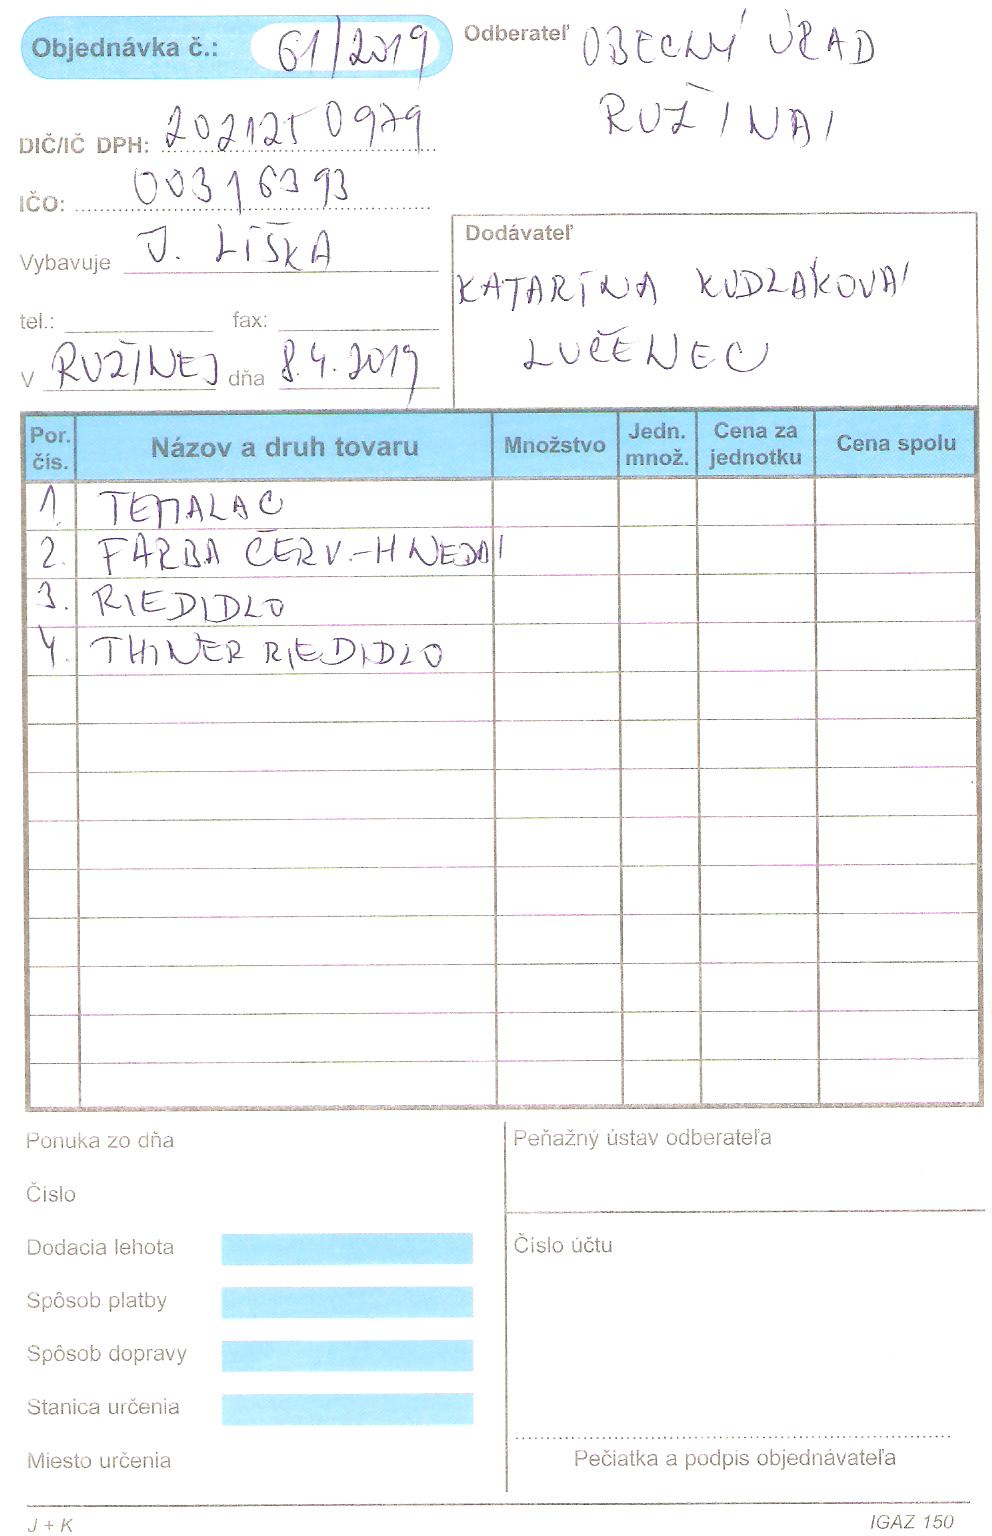 Objednávka č.: 61/2019
Odberateľ OBECNÝ ÚRAD
RUŽINÁ
DIČ/IČ DPH: 2021250979
IČO: 00316393
Vybavuje J. LÍŠKA
tel.: fax:
V RUŽINEJ dňa 8.4.2019
Dodávateľ
KATARÍNA KUDLÁKOVÁ
LUČENEC
Por. čís. Názov a druh tovaru Množstvo Jedn. množ. Cena za jednotku Cena spolu
1. TEMALAC
2. FARBA ČERV.-HNEDÁ
3. RIEDIDLO
4. THINER RIEDIDLO
Ponuka zo dňa
Číslo
Dodacia lehota
Spôsob platby
Spôsob dopravy
Stanica určenia
Miesto určenia
Peňažný ústav odberateľa
Číslo účtu
Pečiatka a podpis objednávateľa
J + K
IGAZ 150